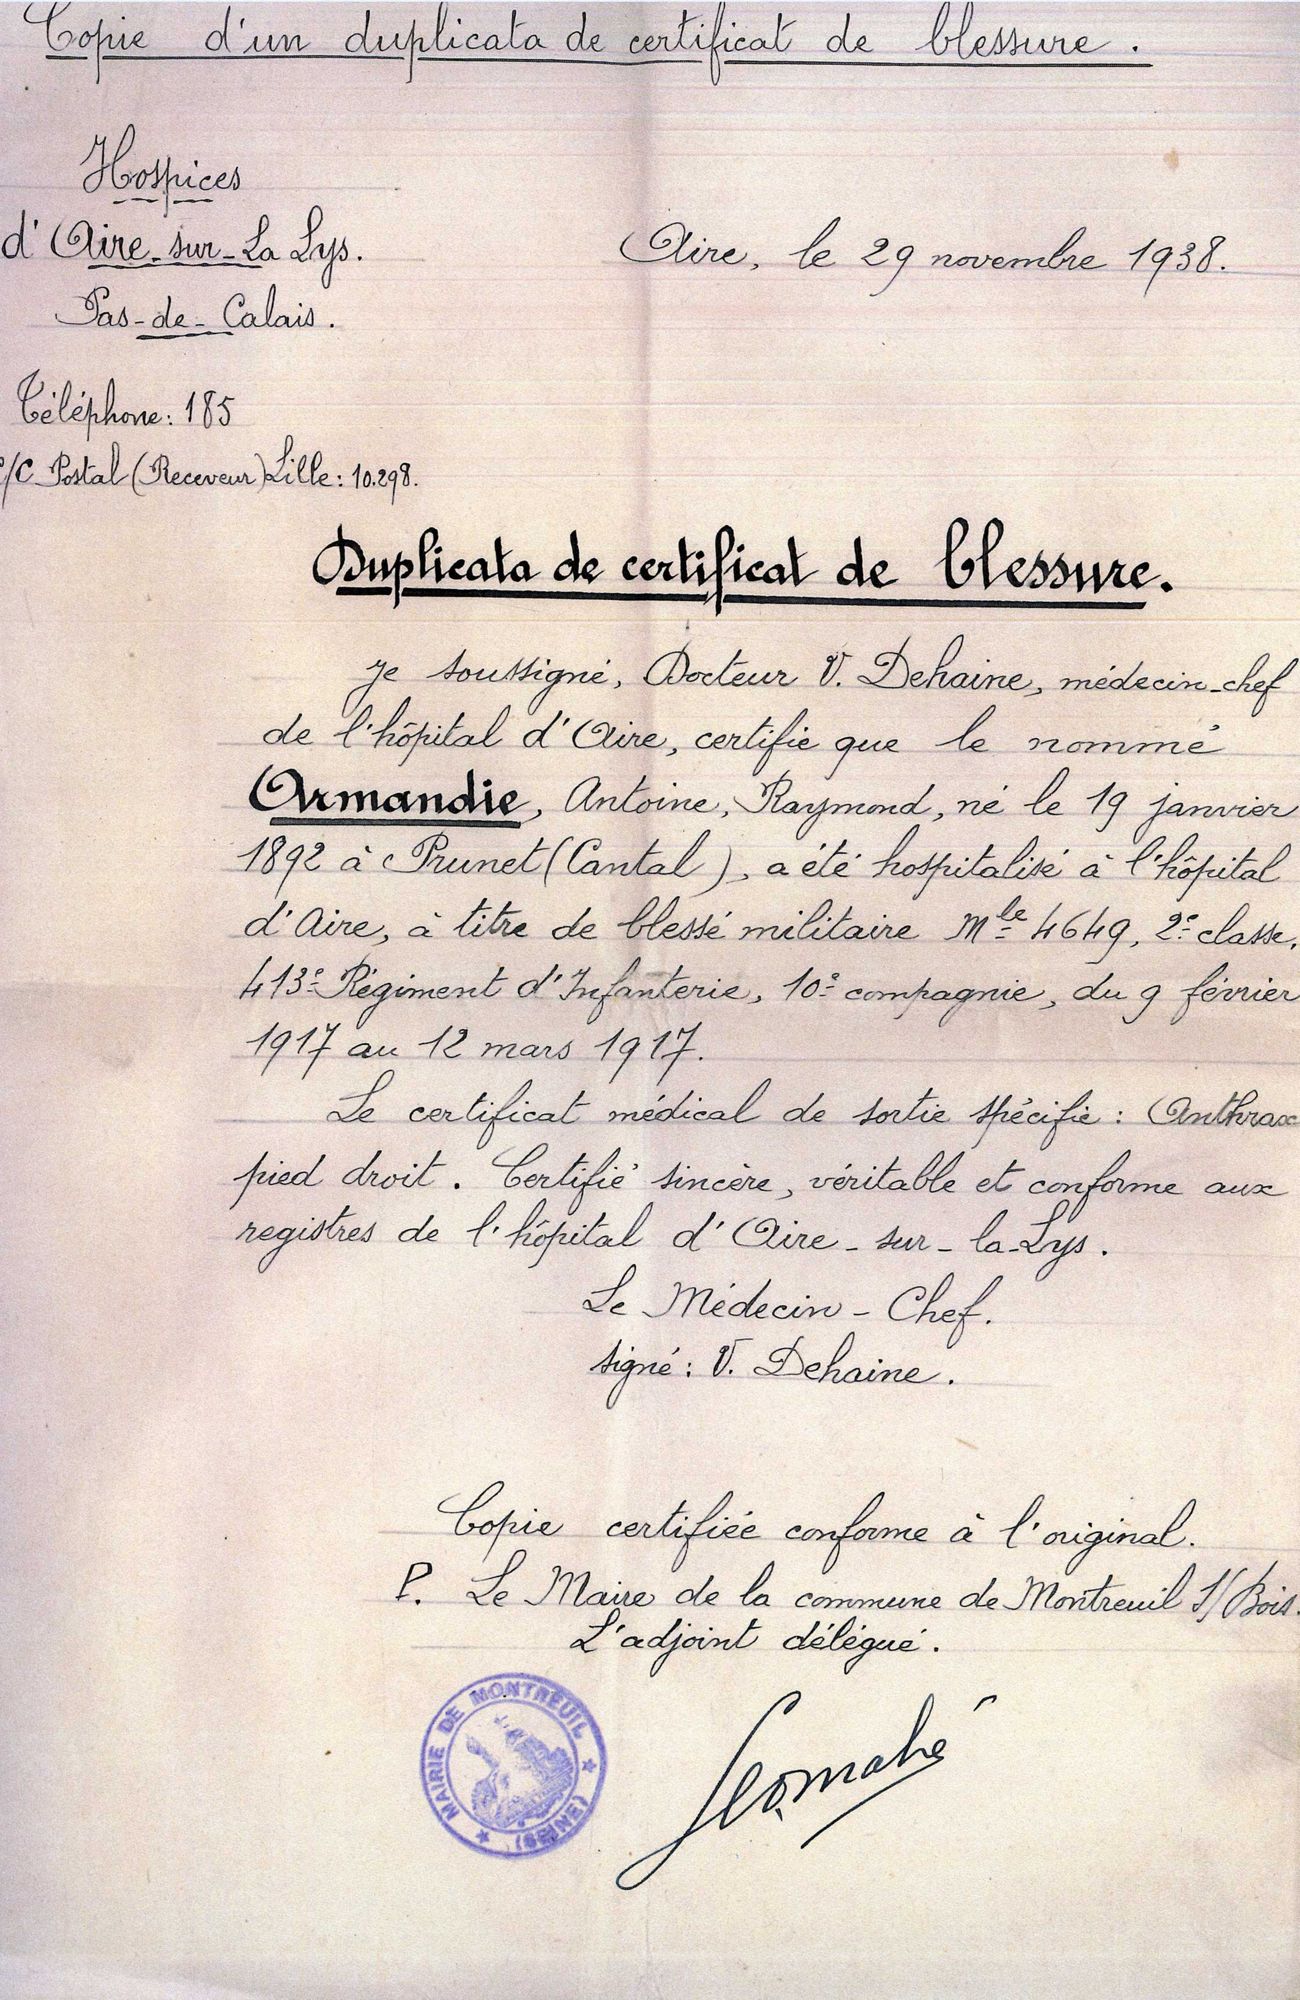 Copie d'un duplicata de certificat de blessure.
Hospices
d'Aire-sur-La Lys.
Pas-de-Calais.
Aire, le 29 novembre 1938.
Téléphone: 185
C/C Postal (Receveur) Lille: 10.298.
Duplicata de certificat de blessure.
Je soussigné, Docteur V. Dehaine, médecin-chef
de l'hôpital d'Aire, certifie que le nommé
Armandie, Antoine, Raymond, né le 19 janvier
1892 à Prunet (Cantal), a été hospitalisé à l'hôpital
d'Aire, à titre de blessé militaire Mle 4649, 2e classe,
413e Régiment d'Infanterie, 10e compagnie, du 9 février
1917 au 12 mars 1917.
Le certificat médical de sortie spécifie: Anthrax
pied droit. Certifié sincère, véritable et conforme aux
registres de l'hôpital d'Aire-sur-la-Lys.
Le Médecin-Chef.
signé: V. Dehaine.
Copie certifiée conforme à l'original.
P. Le Maire de la commune de Montreuil s/Bois.
L'adjoint délégué.
MAIRIE DE MONTREUIL
(SEINE)